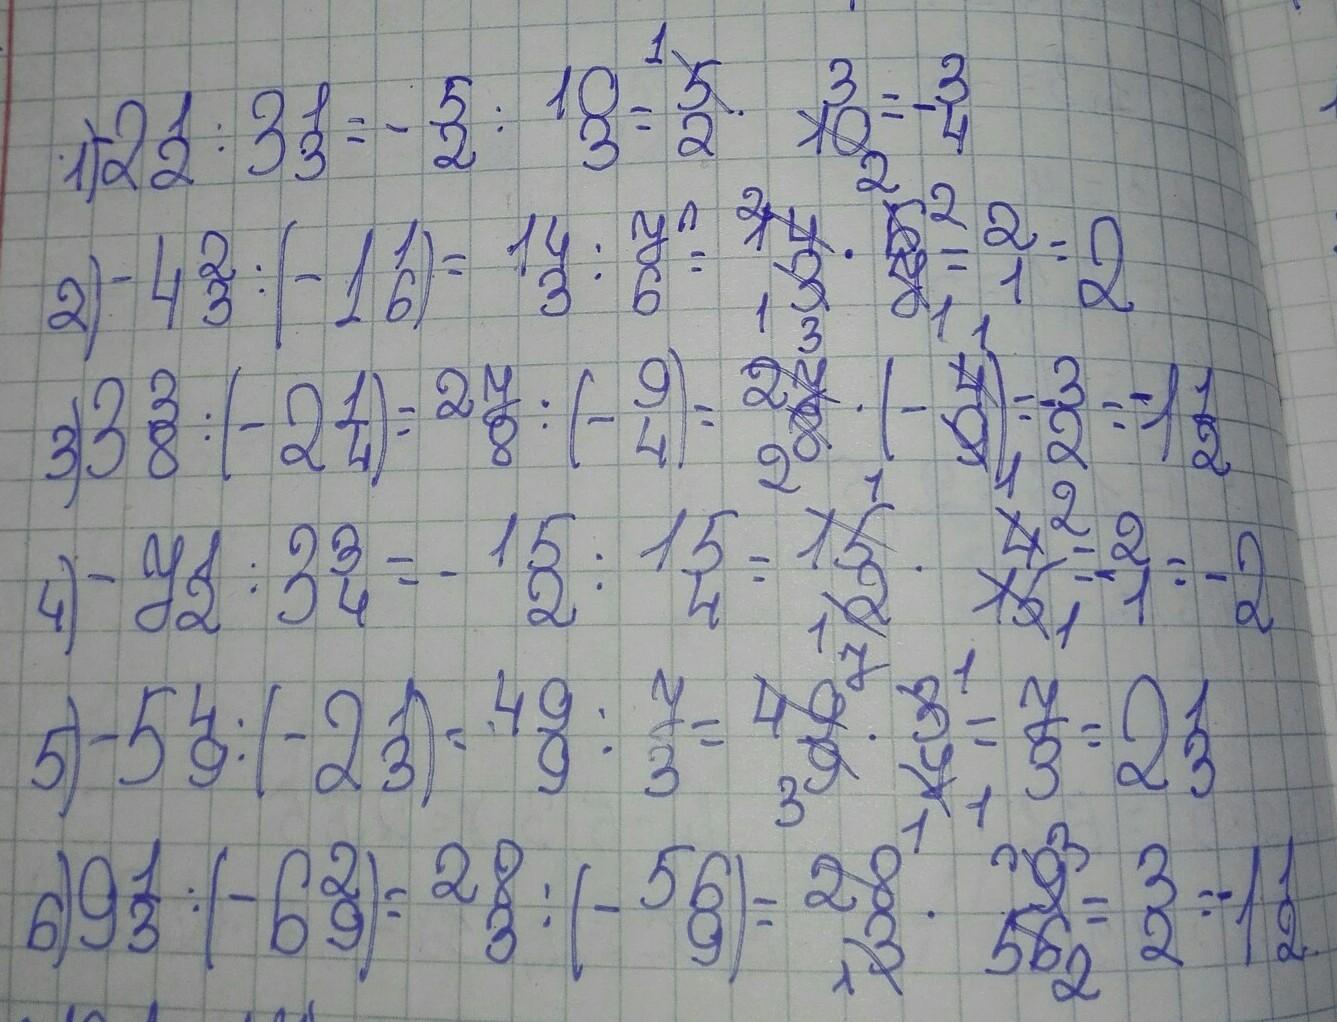 1) -2 1/2 : 3 1/3 = - 5/2 : 10/3 = 5/2 · 3/10 = - 3/4
2) - 4 2/3 : (- 1 1/6) = 14/3 : 7/6 = 14/3 · 6/7 = 2/1 = 2
3) 3 3/8 : (- 2 1/4) = 27/8 : (- 9/4) = 27/8 · (- 4/9) = - 3/2 = - 1 1/2
4) - 7 1/2 : 3 3/4 = - 15/2 : 15/4 = 15/2 · 4/15 = - 2/1 = - 2
5) - 5 4/9 : (- 2 1/3) = 49/9 : 7/3 = 49/9 · 3/7 = 7/3 = 2 1/3
6) 9 1/3 : (- 6 2/9) = 28/3 : (- 56/9) = 28/3 · 9/56 = 3/2 = - 1 1/2